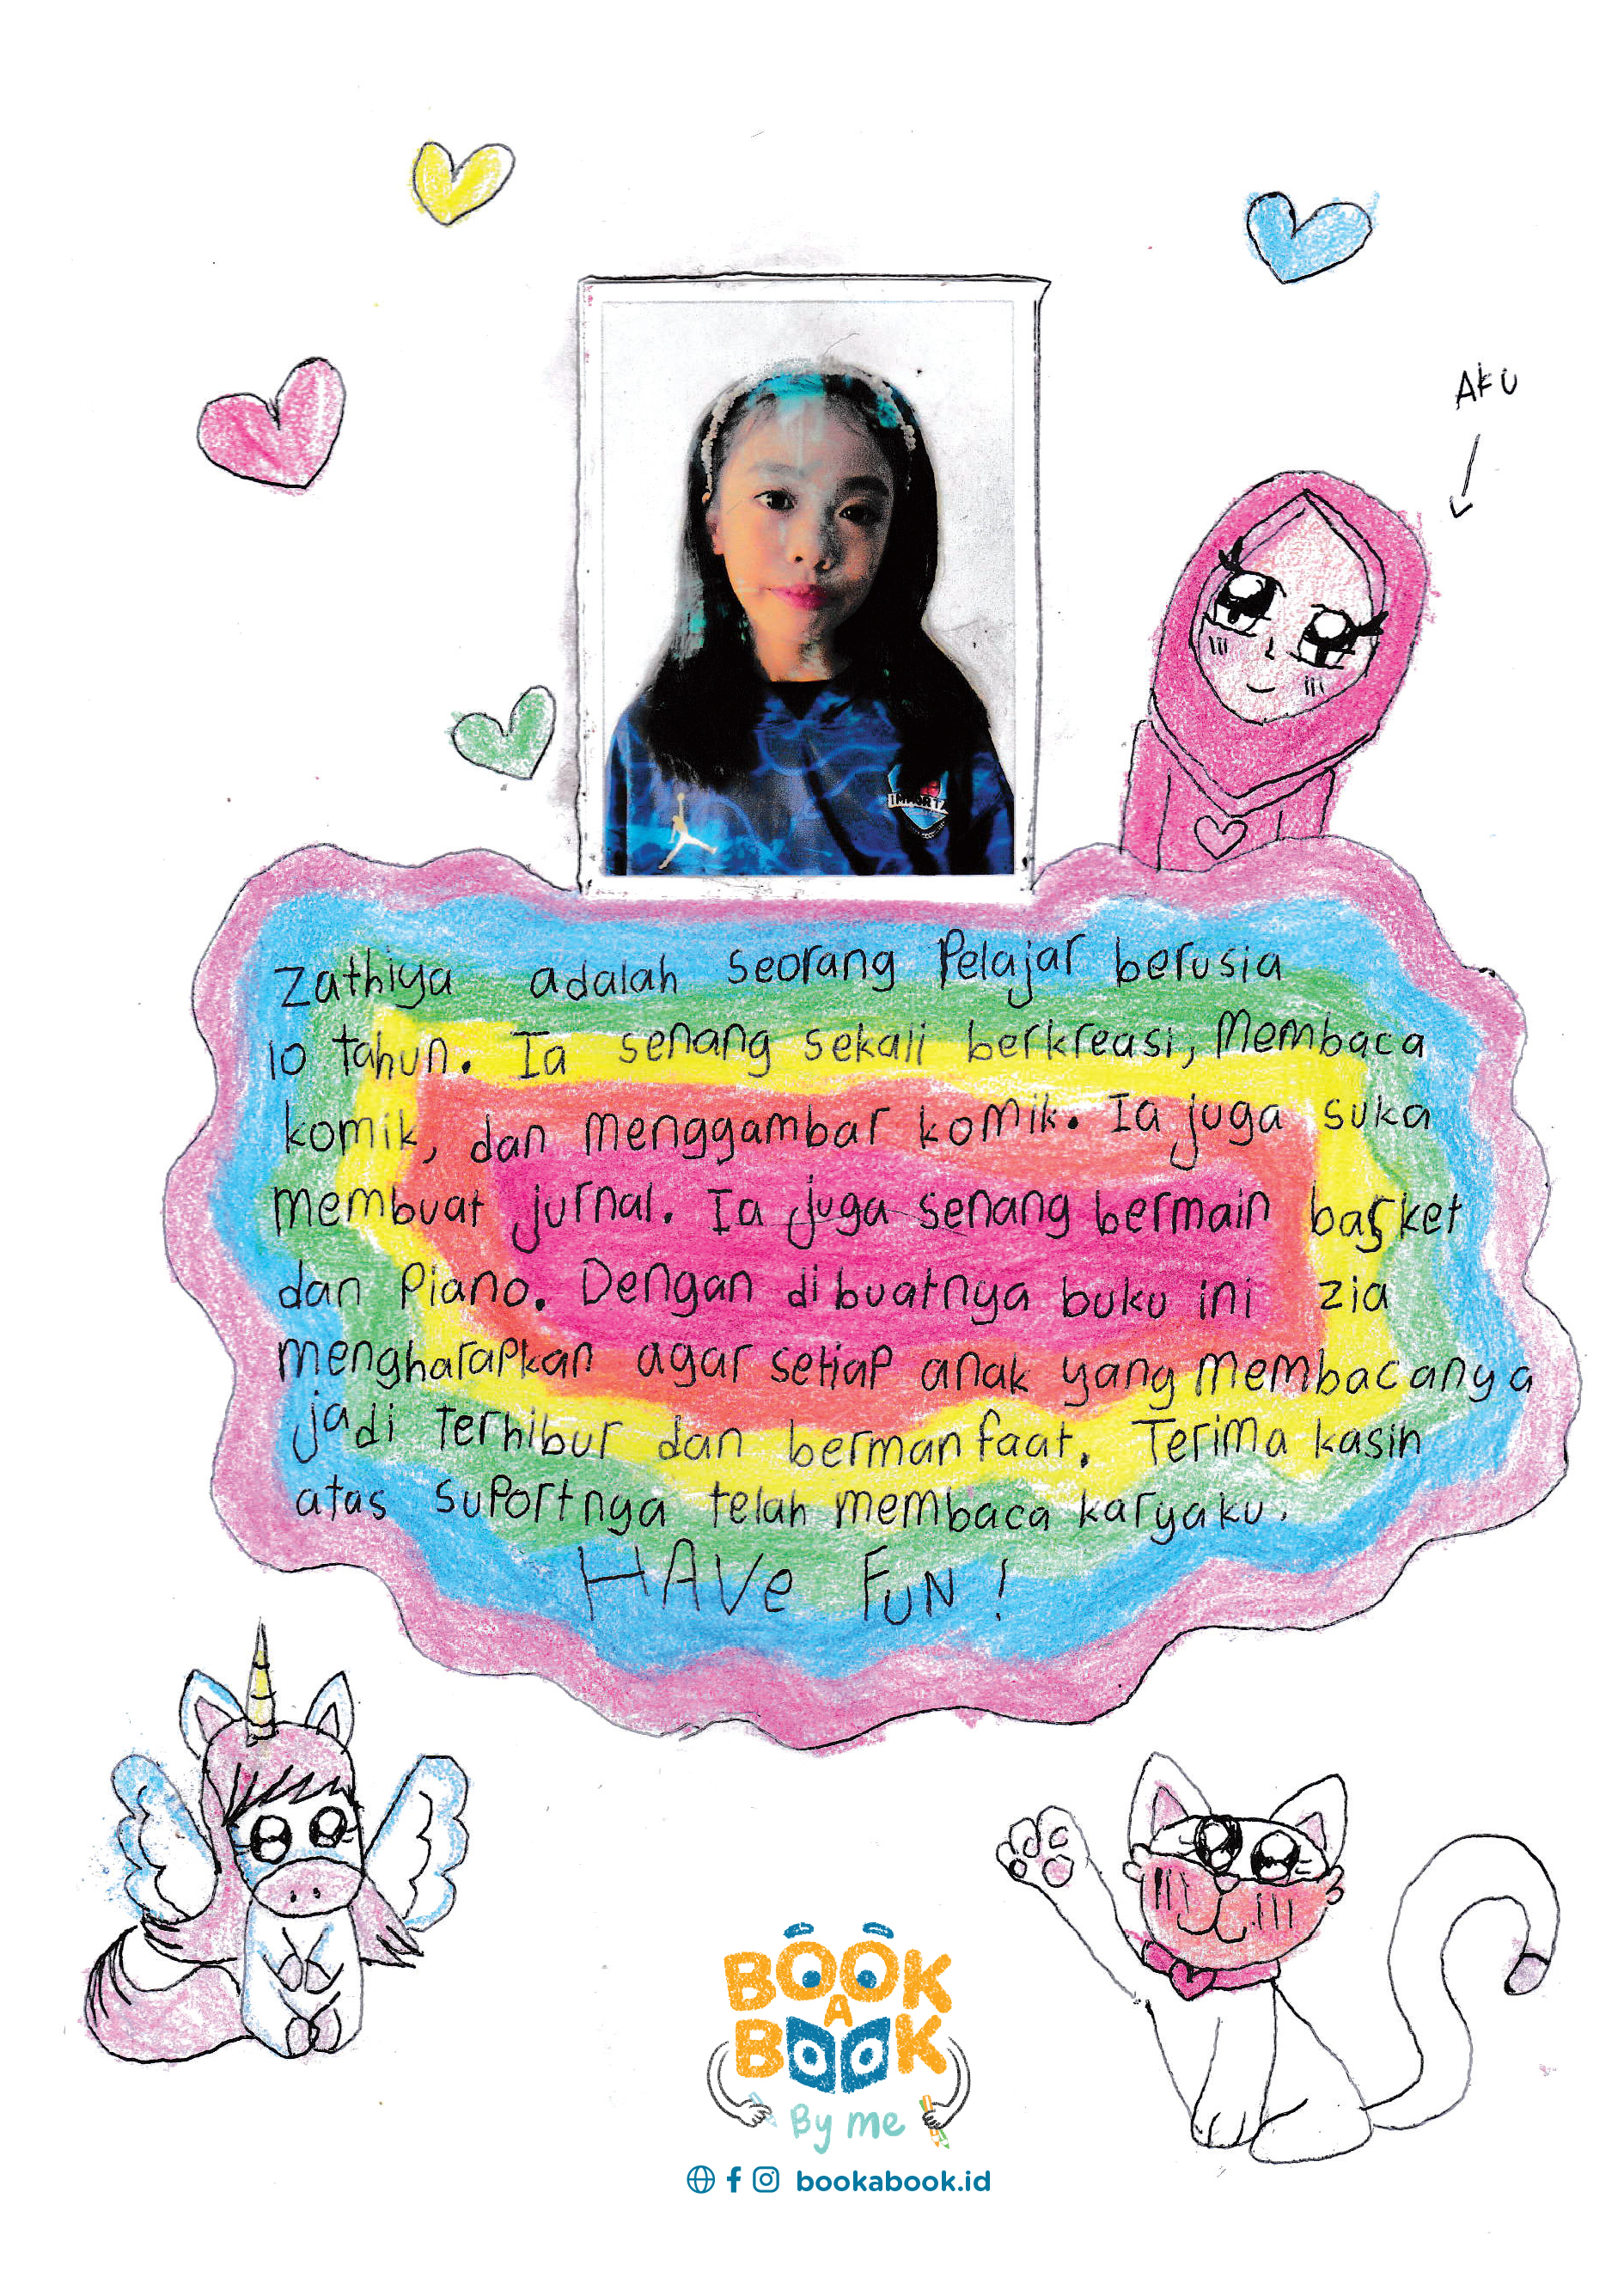 AKU
Zathiya adalah seorang Pelajar berusia
10 tahun. Ia senang sekali berkreasi, membaca
komik, dan menggambar komik. Ia juga suka
membuat jurnal. Ia juga senang bermain basket
dan Piano. Dengan dibuatnya buku ini zia
mengharapkan agar setiap anak yang membacanya
jadi terhibur dan bermanfaat. Terima kasih
atas suportnya telah membaca karyaku.
HAVe FUN!
BOOK
A
BOOK
By me
bookabook.id